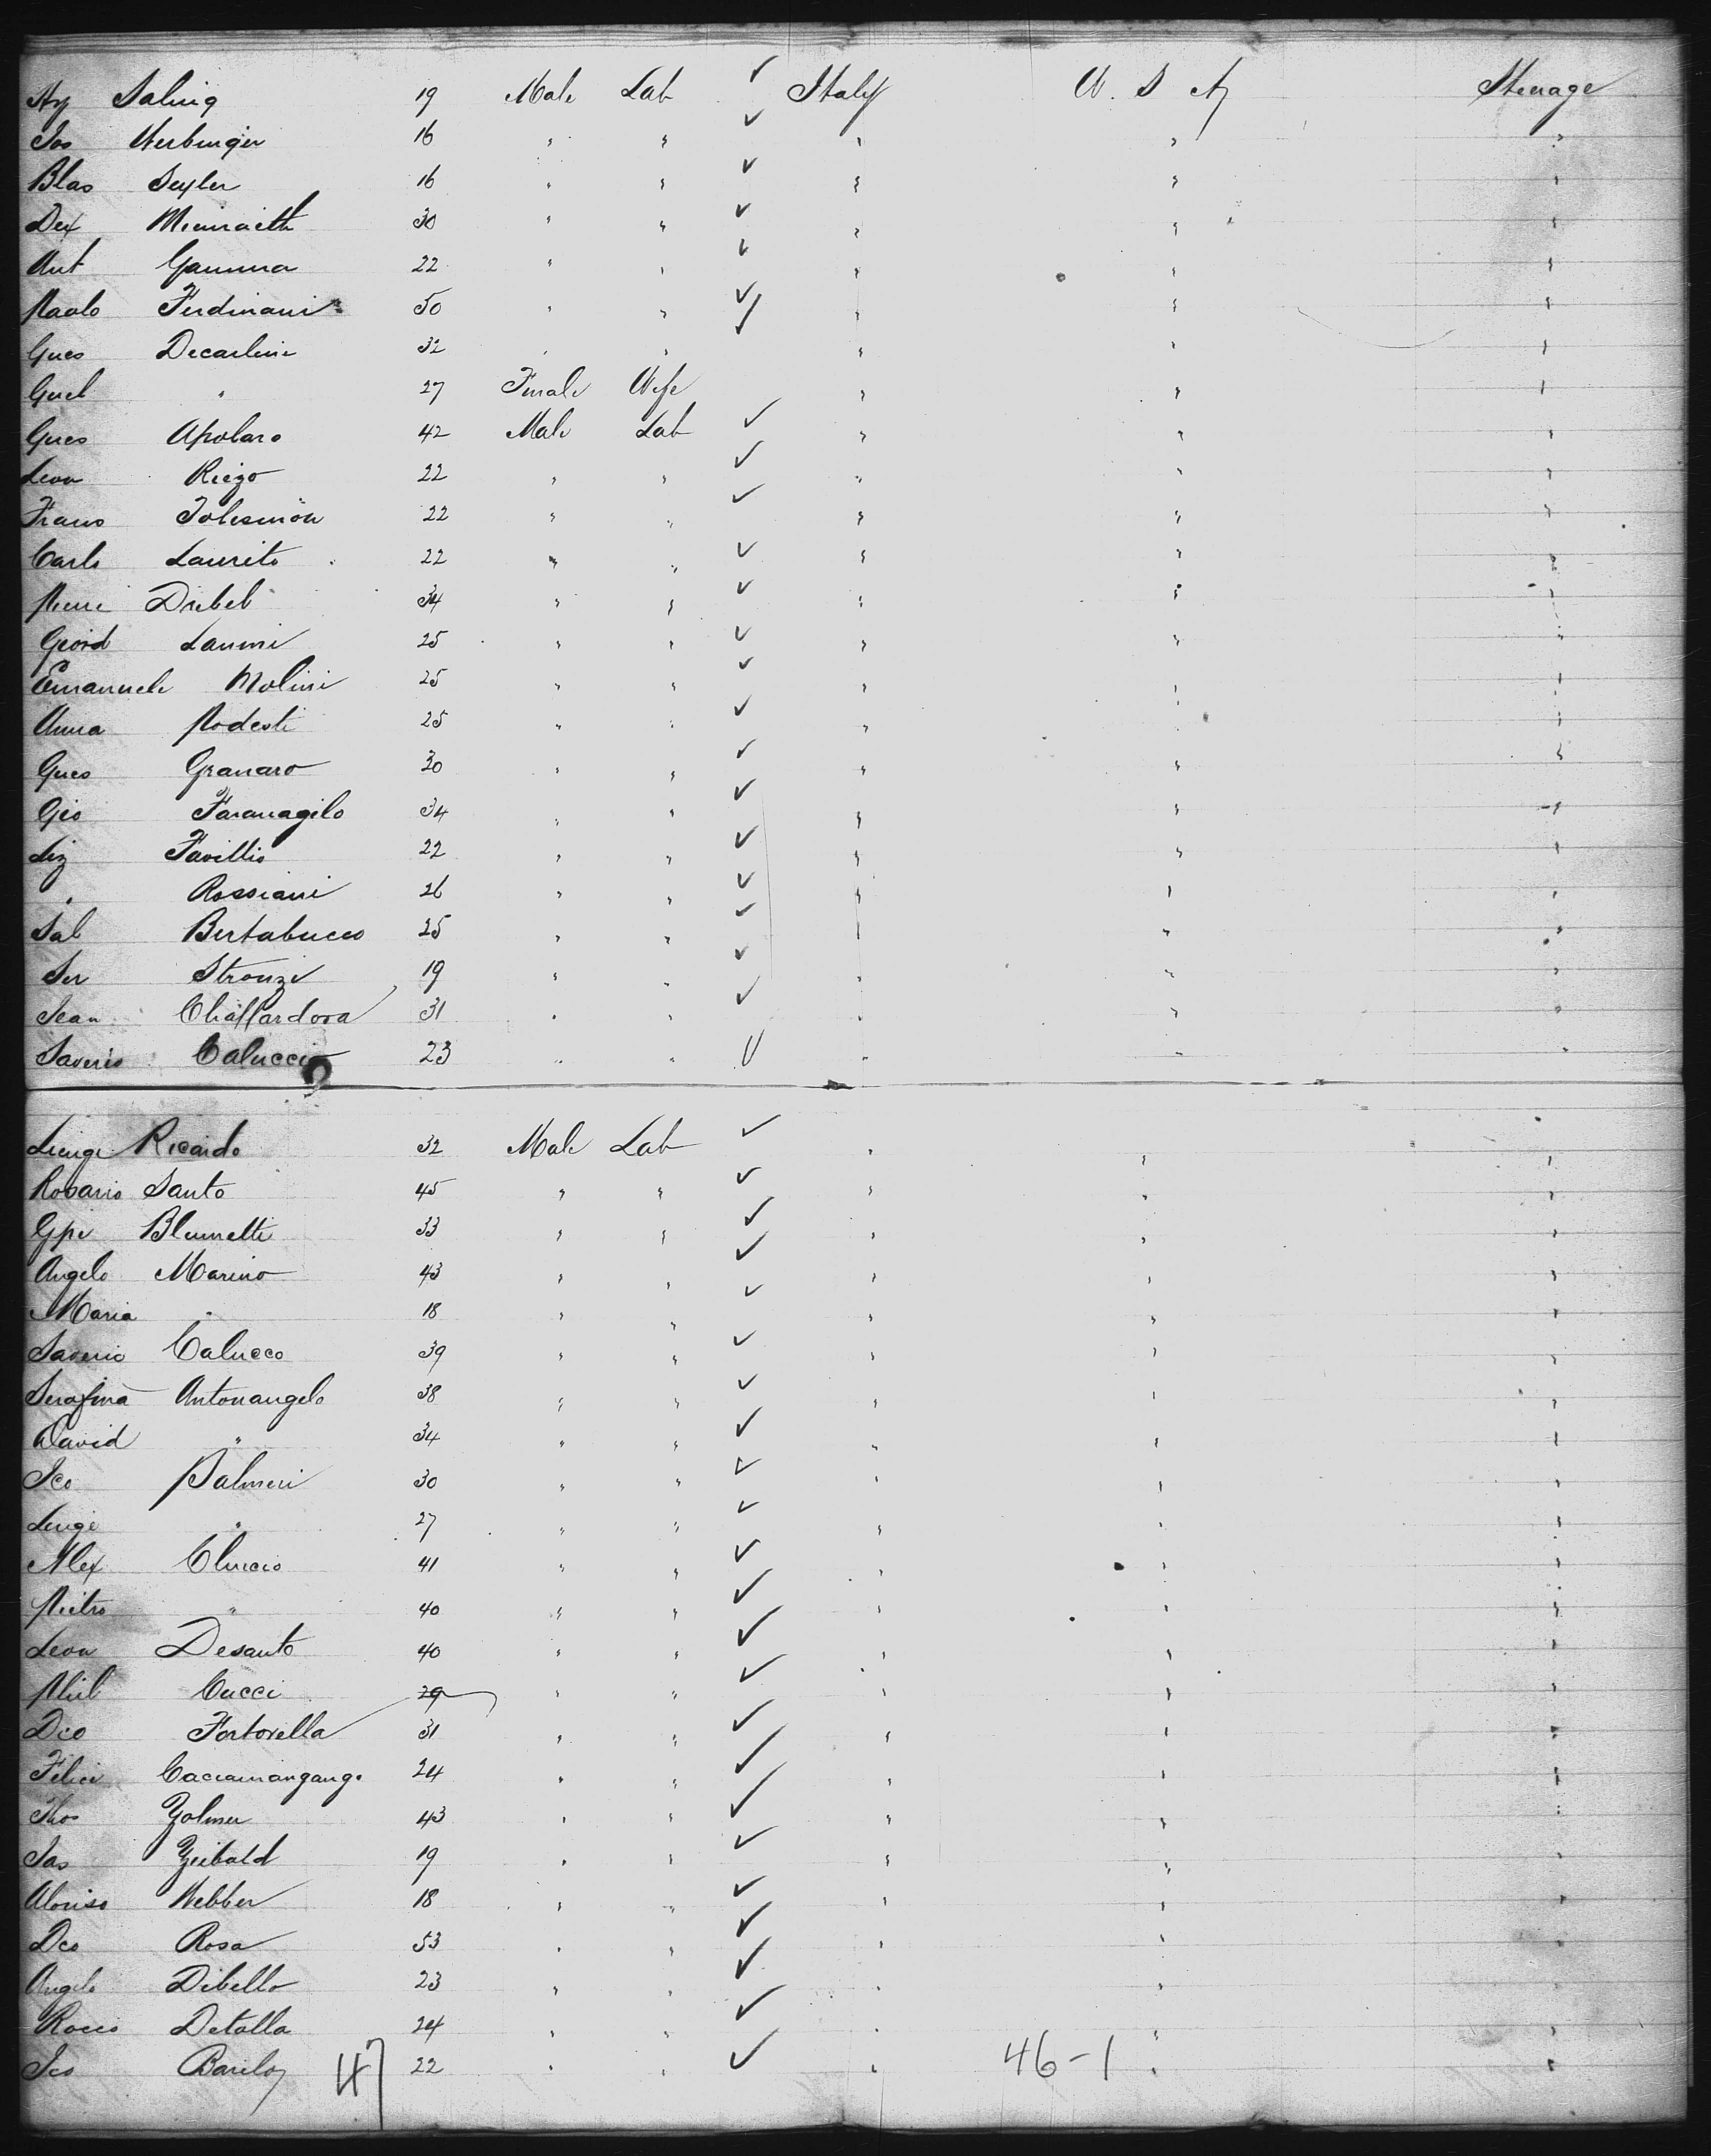 Ag Saling 19 Male Lab ✓ Italy U. S A Steerage
Jos Werbinger 16 " " ✓ " " "
Blas Seyler 16 " " ✓ " " "
Dex 30 " " ✓ " " "
Ant Gamma 22 " " ✓ " " "
Paolo Ferdinani 50 " " ✓ " " "
Gues Decarlini 32 " " ✓ " " "
Guel " 27 Female Wife " " "
Gues Apolaro 42 Male Lab ✓ " " "
Leon Riezo 22 " " ✓ " " "
Frans Tolesmon 22 " " ✓ " " "
Carlo Laurito 22 " " ✓ " " "
Pierre Driebel 34 " " ✓ " " "
Geord Launi 25 " " ✓ " " "
Emanuele Molini 25 " " ✓ " " "
Anna Podesti 25 " " ✓ " " "
Gues Granaro 30 " " ✓ " " "
Gio Faranagilo 34 " " ✓ " " "
Liz Favillis 22 " " ✓ " " "
" Rossiani 26 " " ✓ " " "
Sal Bertabucco 25 " " ✓ " " "
Ser Stronzi 19 " " ✓ " " "
Jean Chiaffardova 31 " " ✓ " " "
Saverio Caluccio 23 " " ✓ " " "
Luigi Ricardo 32 Male Lab ✓ " " "
Rosario Santo 45 " " ✓ " " "
Gpe Blumetti 33 " " ✓ " " "
Angelo Marino 43 " " ✓ " " "
Maria " 18 " " ✓ " " "
Saverio Calucco 39 " " ✓ " " "
Serafina Antonangelo 38 " " ✓ " " "
David " 34 " " ✓ " " "
Jco Palmeri 30 " " ✓ " " "
Luigi " 27 " " ✓ " " "
Alex Cluccio 41 " " ✓ " " "
Pietro " 40 " " ✓ " " "
Leon Desanto 40 " " ✓ " " "
Phil Cucci 29 " " ✓ " " "
Dco Fortorella 31 " " ✓ " " "
Felice Cacciamangango 24 " " ✓ " " "
Thos Zolmer 43 " " ✓ " " "
Jas Zeibald 19 " " ✓ " " "
Aloniso Webber 18 " " ✓ " " "
Dco Rosa 53 " " ✓ " " "
Angelo Dibello 23 " " ✓ " " "
Rocco Detolla 24 " " ✓ " " "
Jco Barilo 22 " " ✓ " " "
47 46-1